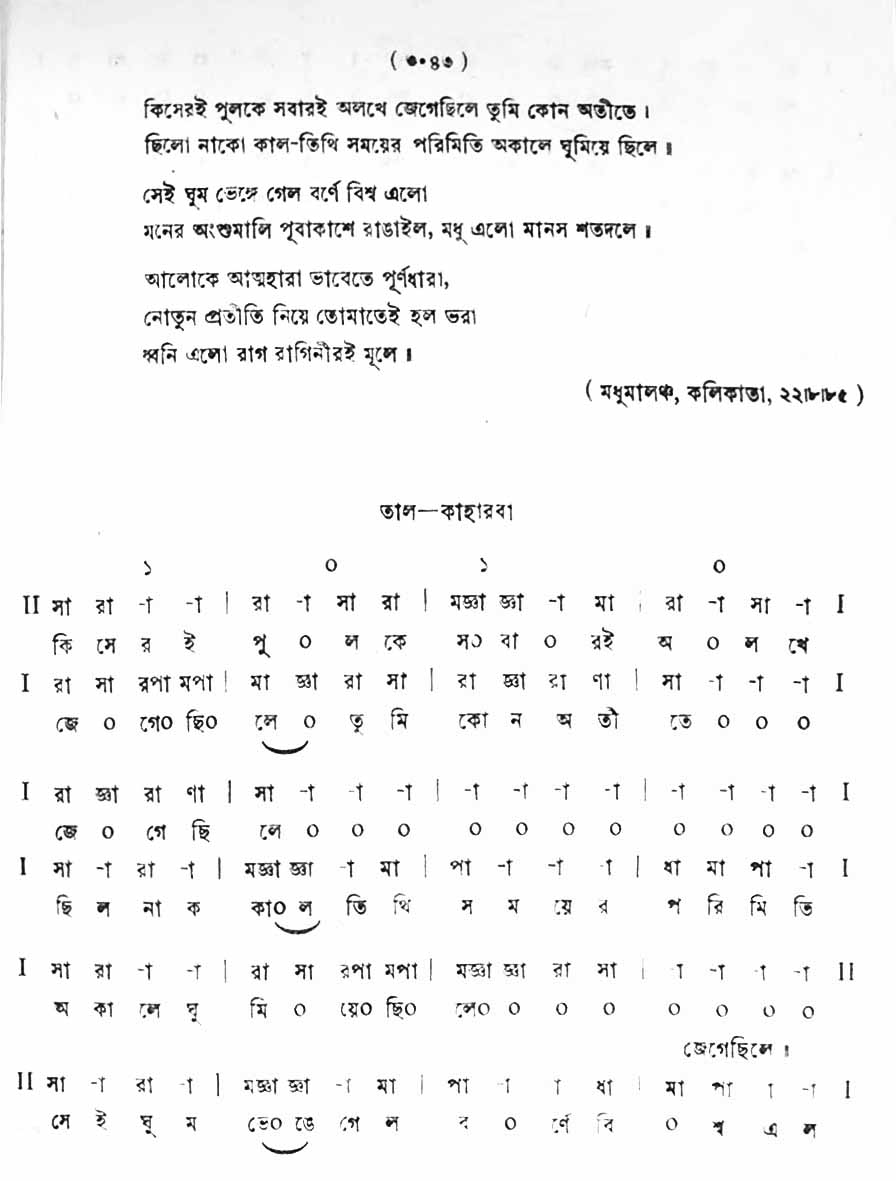 ( ৩০৪৩ )
কিসেরই পুলকে সবারই অলখে জেগেছিলে তুমি কোন অতীতে ।
ছিলো নাকো কাল-তিথি সময়ের পরিমিতি অকালে ঘুমিয়ে ছিলে ॥
সেই ঘুম ভেঙ্গে গেল বর্ণে বিশ্ব এলো
মনের অংশুমালি পূবাকাশে রাঙাইল, মধু এলো মানস শতদলে ॥
আলোকে আত্মহারা ভাবেতে পূর্ণধারা,
নোতুন প্রতীতি নিয়ে তোমাতেই হল ভরা
ধ্বনি এলো রাগ রাগিনীরই মূলে ॥
( মধুমালঞ্চ, কলিকাতা, ২২।৮।৮৫ )
তাল—কাহারবা
১ ০ ১ ০
II সা রা -া -া | রা -া সা রা | মজ্ঞা জ্ঞা -া মা | রা -া সা -া I
কি সে র ই পু ০ ল কে স০ বা ০ রই অ ০ ল খে
I রা সা রপা মপা | মা জ্ঞা রা সা | রা জ্ঞা রা ণা | সা -া -া -া I
জে ০ গে০ ছি০ লে ০ তু মি কো ন অ তী তে ০ ০ ০
I রা জ্ঞা রা ণা | সা -া -া -া | -া -া -া -া | -া -া -া -া I
জে ০ গে ছি লে ০ ০ ০ ০ ০ ০ ০ ০ ০ ০ ০
I সা -া রা -া | মজ্ঞা জ্ঞা -া মা | পা -া -া -া | ধা মা পা -া I
ছি ল না ক কা০ ল তি থি স ম য়ে র প রি মি তি
I সা রা -া -া | রা সা রপা মপা | মজ্ঞা জ্ঞা রা সা | -া -া -া -া II
অ কা লে ঘু মি ০ য়ে০ ছি০ লে০ ০ ০ ০ ০ ০ ০ ০
জেগেছিলে ॥
II সা -া রা -া | মজ্ঞা জ্ঞা -া মা | পা -া া ধা | মা পা া -া I
সে ই ঘু ম ভে০ ঙে গে ল ব ০ র্ণে বি ০ শ্ব এ ল